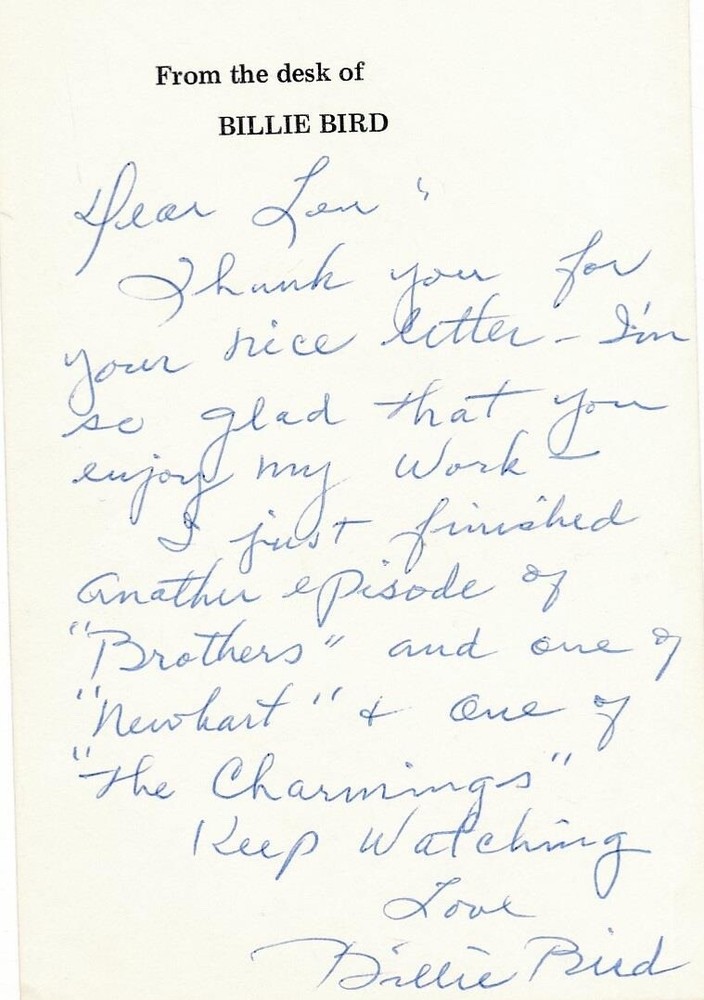 From the desk of
BILLIE BIRD
Dear Len "
Thank you for
your nice letter - I'm
so glad that you
enjoy my work -
I just finished
another episode of
"Brothers" and one of
"Newhart" & one of
"The Charmings"
Keep Watching
Love
Billie Bird